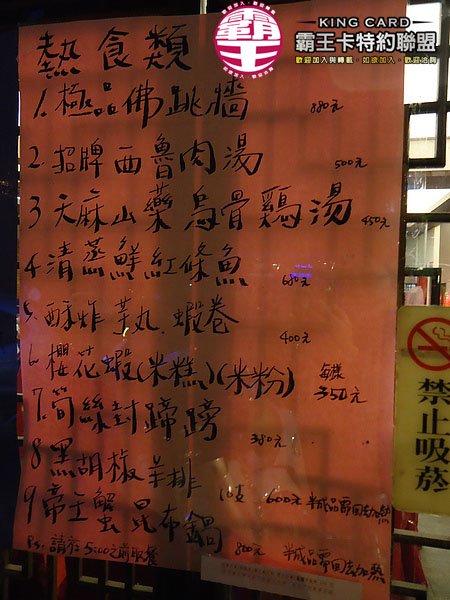 KING CARD
霸王
霸王卡特約聯盟
歡迎加入與轉載，如欲加入，歡迎洽詢
熱食類
1. 極品佛跳牆 880元
2. 招牌西魯肉湯 500元
3 天麻山藥烏骨鷄湯 450元
4. 清蒸鮮紅條魚 680元
5. 酥炸芋丸.蝦卷 400元
6 櫻花蝦(米糕)(米粉) 每樣 350元
7. 筍絲封蹄膀 380元
8 黑胡椒羊排 10支 600元 半成品需回去加熱
9 帝王蟹昆布鍋 800元 半成品需回去加熱
Ps: 請於5:00之前取餐
禁止吸菸